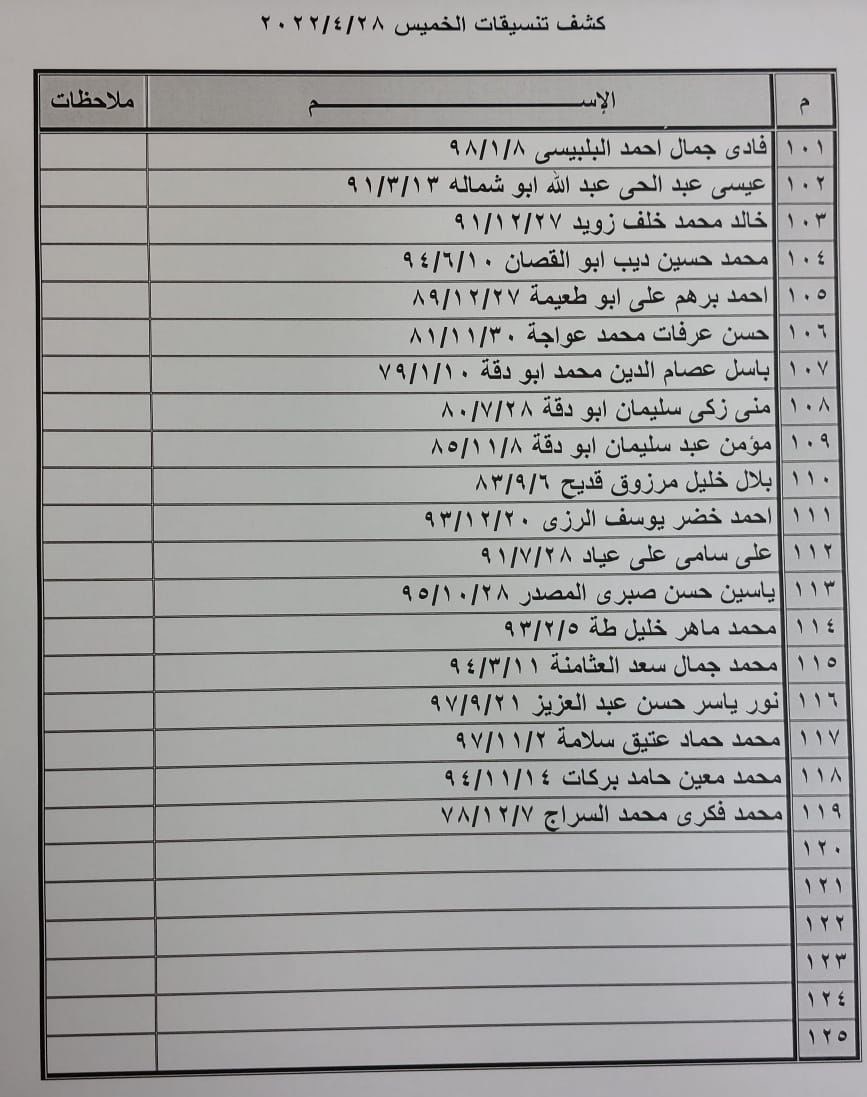 كشف تنسيقات الخميس ٢٠٢٢/٤/٢٨
م الإســـــــــــــــــم ملاحظات
١٠١ فادى جمال احمد البلبيسى ٩٨/١/٨
١٠٢ عيسى عبد الحى عبد الله ابو شماله ٩١/٣/١٣
١٠٣ خالد محمد خلف زويد ٩١/١٢/٢٧
١٠٤ محمد حسين ديب ابو القصان ٩٤/٦/١٠
١٠٥ احمد برهم على ابو طعيمة ٨٩/١٢/٢٧
١٠٦ حسن عرفات محمد عواجة ٨١/١١/٣٠
١٠٧ باسل عصام الدين محمد ابو دقة ٧٩/١/١٠
١٠٨ منى زكى سليمان ابو دقة ٨٠/٧/٢٨
١٠٩ مؤمن عبد سليمان ابو دقة ٨٥/١١/٨
١١٠ بلال خليل مرزوق قديح ٨٣/٩/٦
١١١ احمد خضر يوسف الرزى ٩٣/١٢/٢٠
١١٢ على سامى على عياد ٩١/٧/٢٨
١١٣ ياسين حسن صبرى المصدر ٩٥/١٠/٢٨
١١٤ محمد ماهر خليل طة ٩٣/٢/٥
١١٥ محمد جمال سعد العثامنة ٩٤/٣/١١
١١٦ نور ياسر حسن عبد العزيز ٩٧/٩/٢١
١١٧ محمد حماد عتيق سلامة ٩٧/١١/٢
١١٨ محمد معين حامد بركات ٩٤/١١/١٤
١١٩ محمد فكرى محمد السراج ٧٨/١٢/٧
١٢٠
١٢١
١٢٢
١٢٣
١٢٤
١٢٥